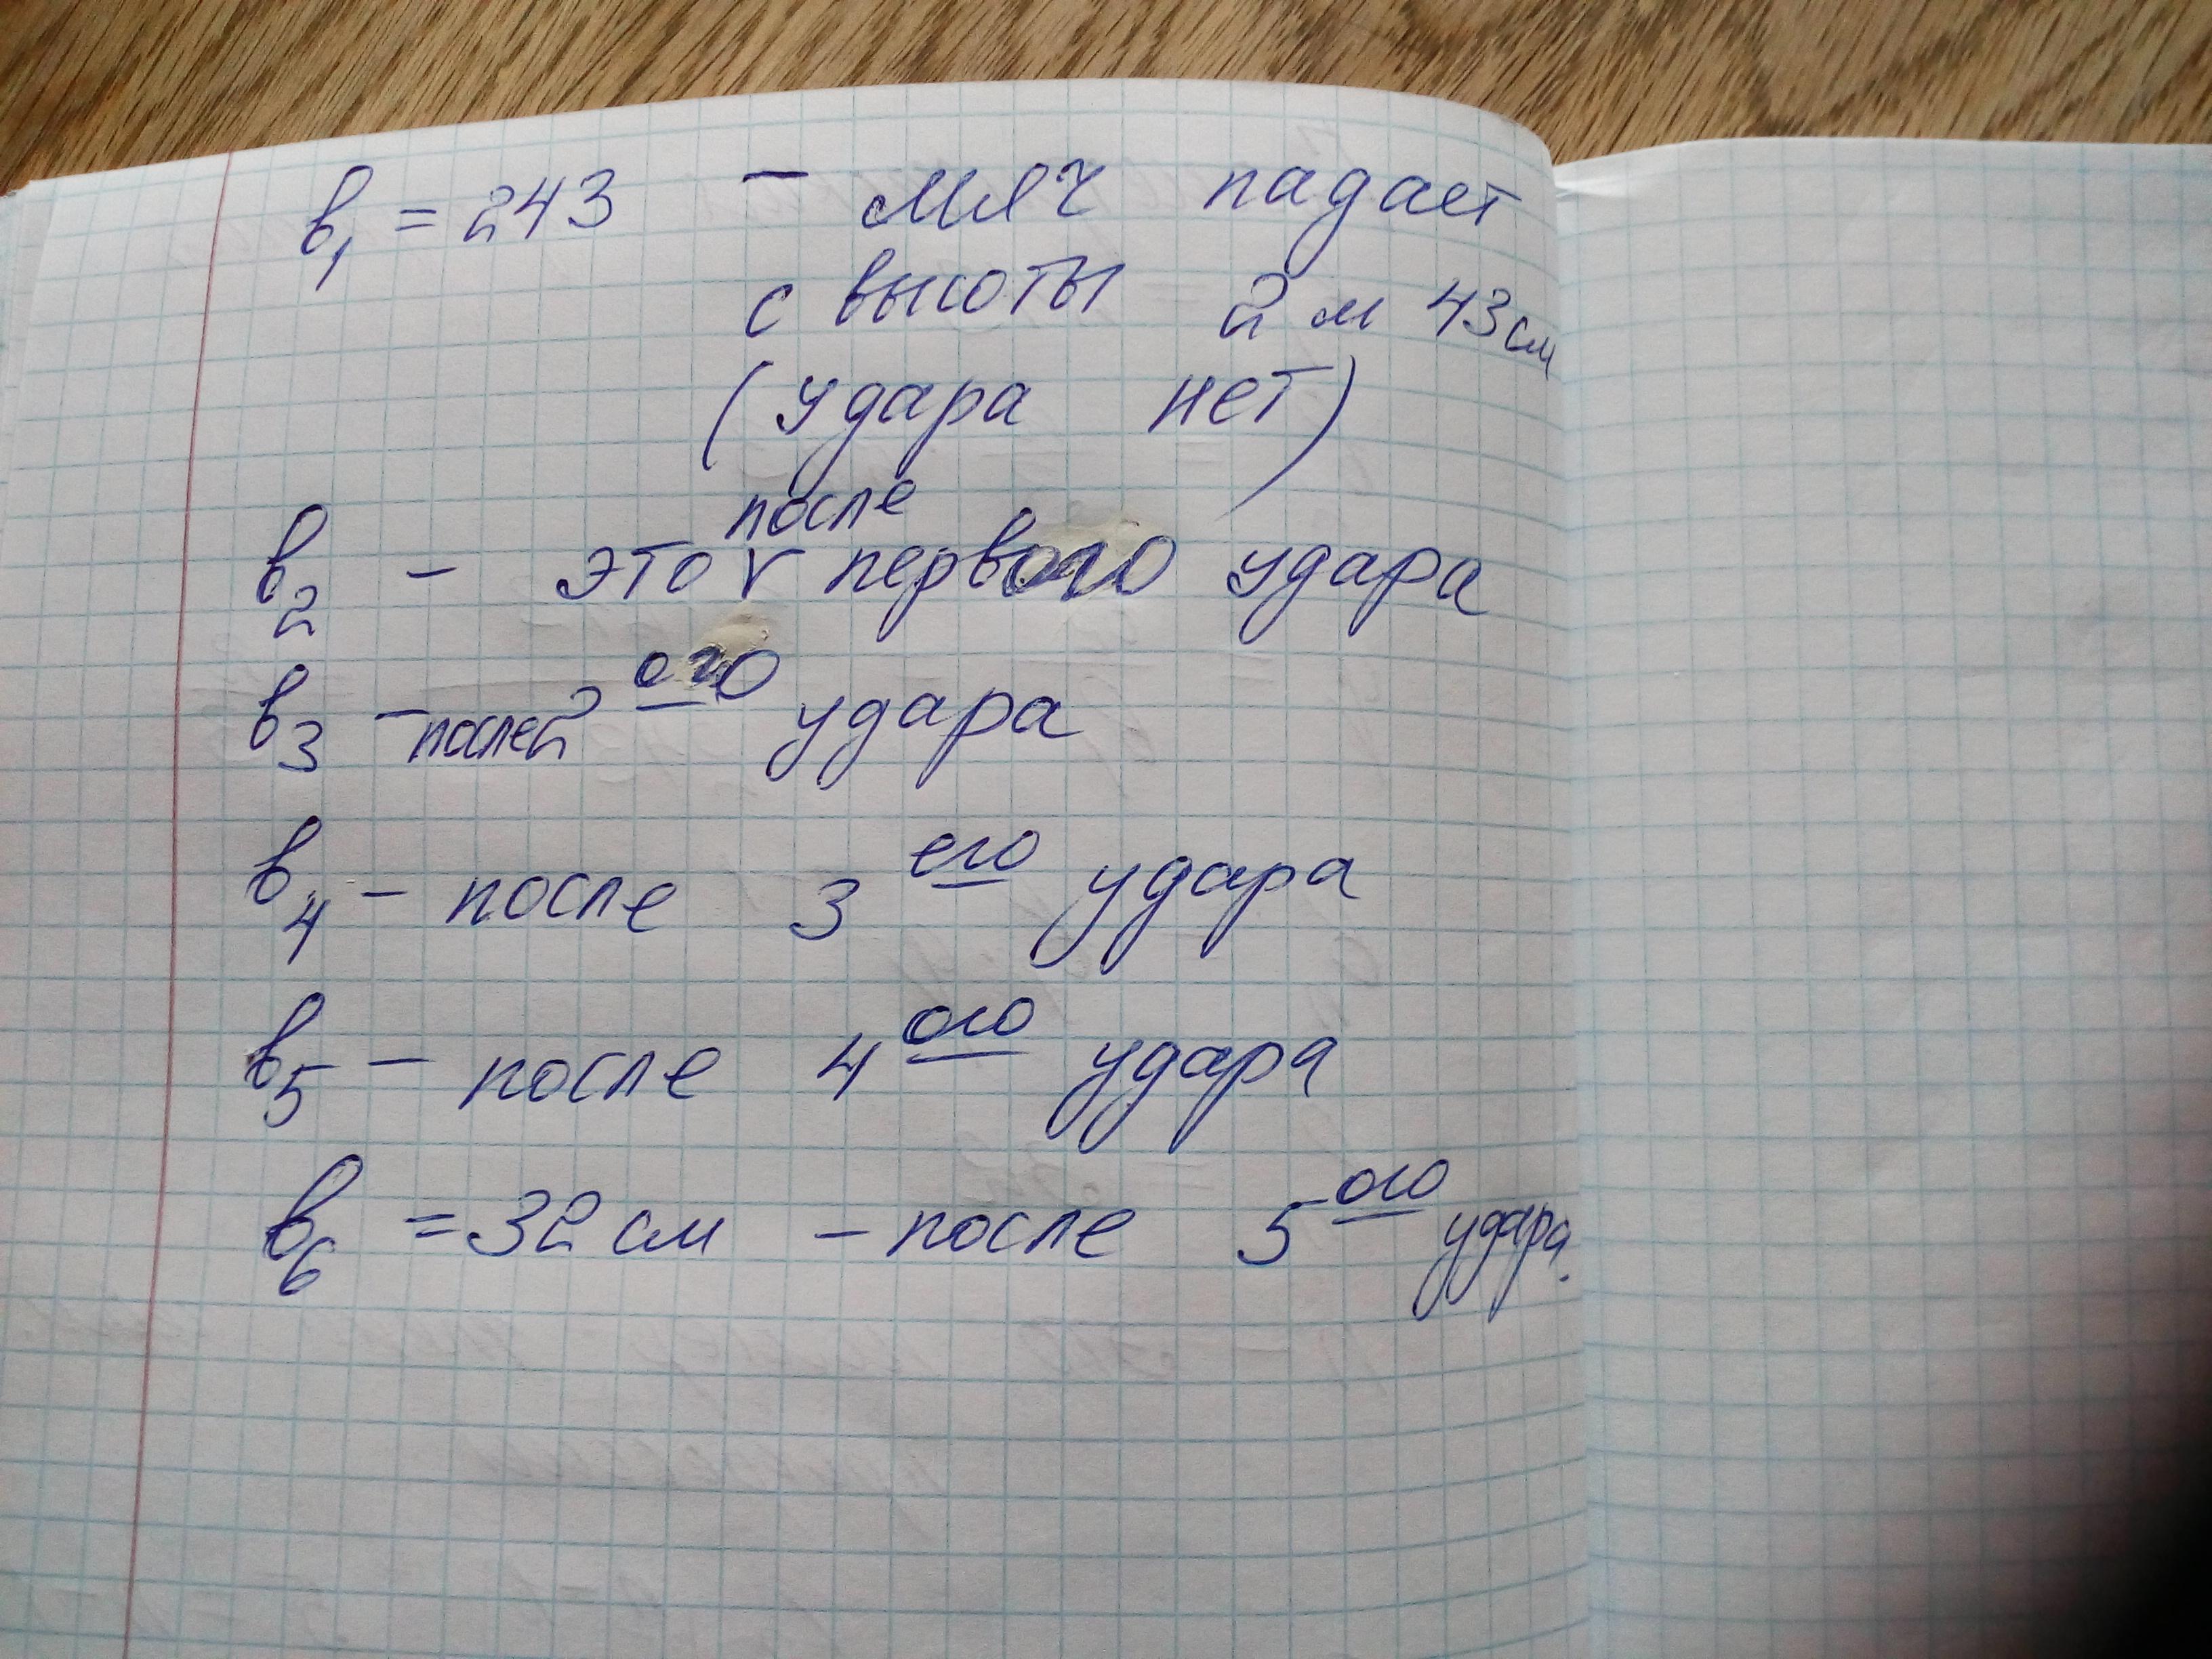 в₁ = 243 – мяч падает
с высоты 2 м 43 см
(удара нет)
после
в₂ – это v первого удара
в₃ – после 2 ого удара
в₄ – после 3 его удара
в₅ – после 4 ого удара
в₆ = 32 см – после 5 ого удара.